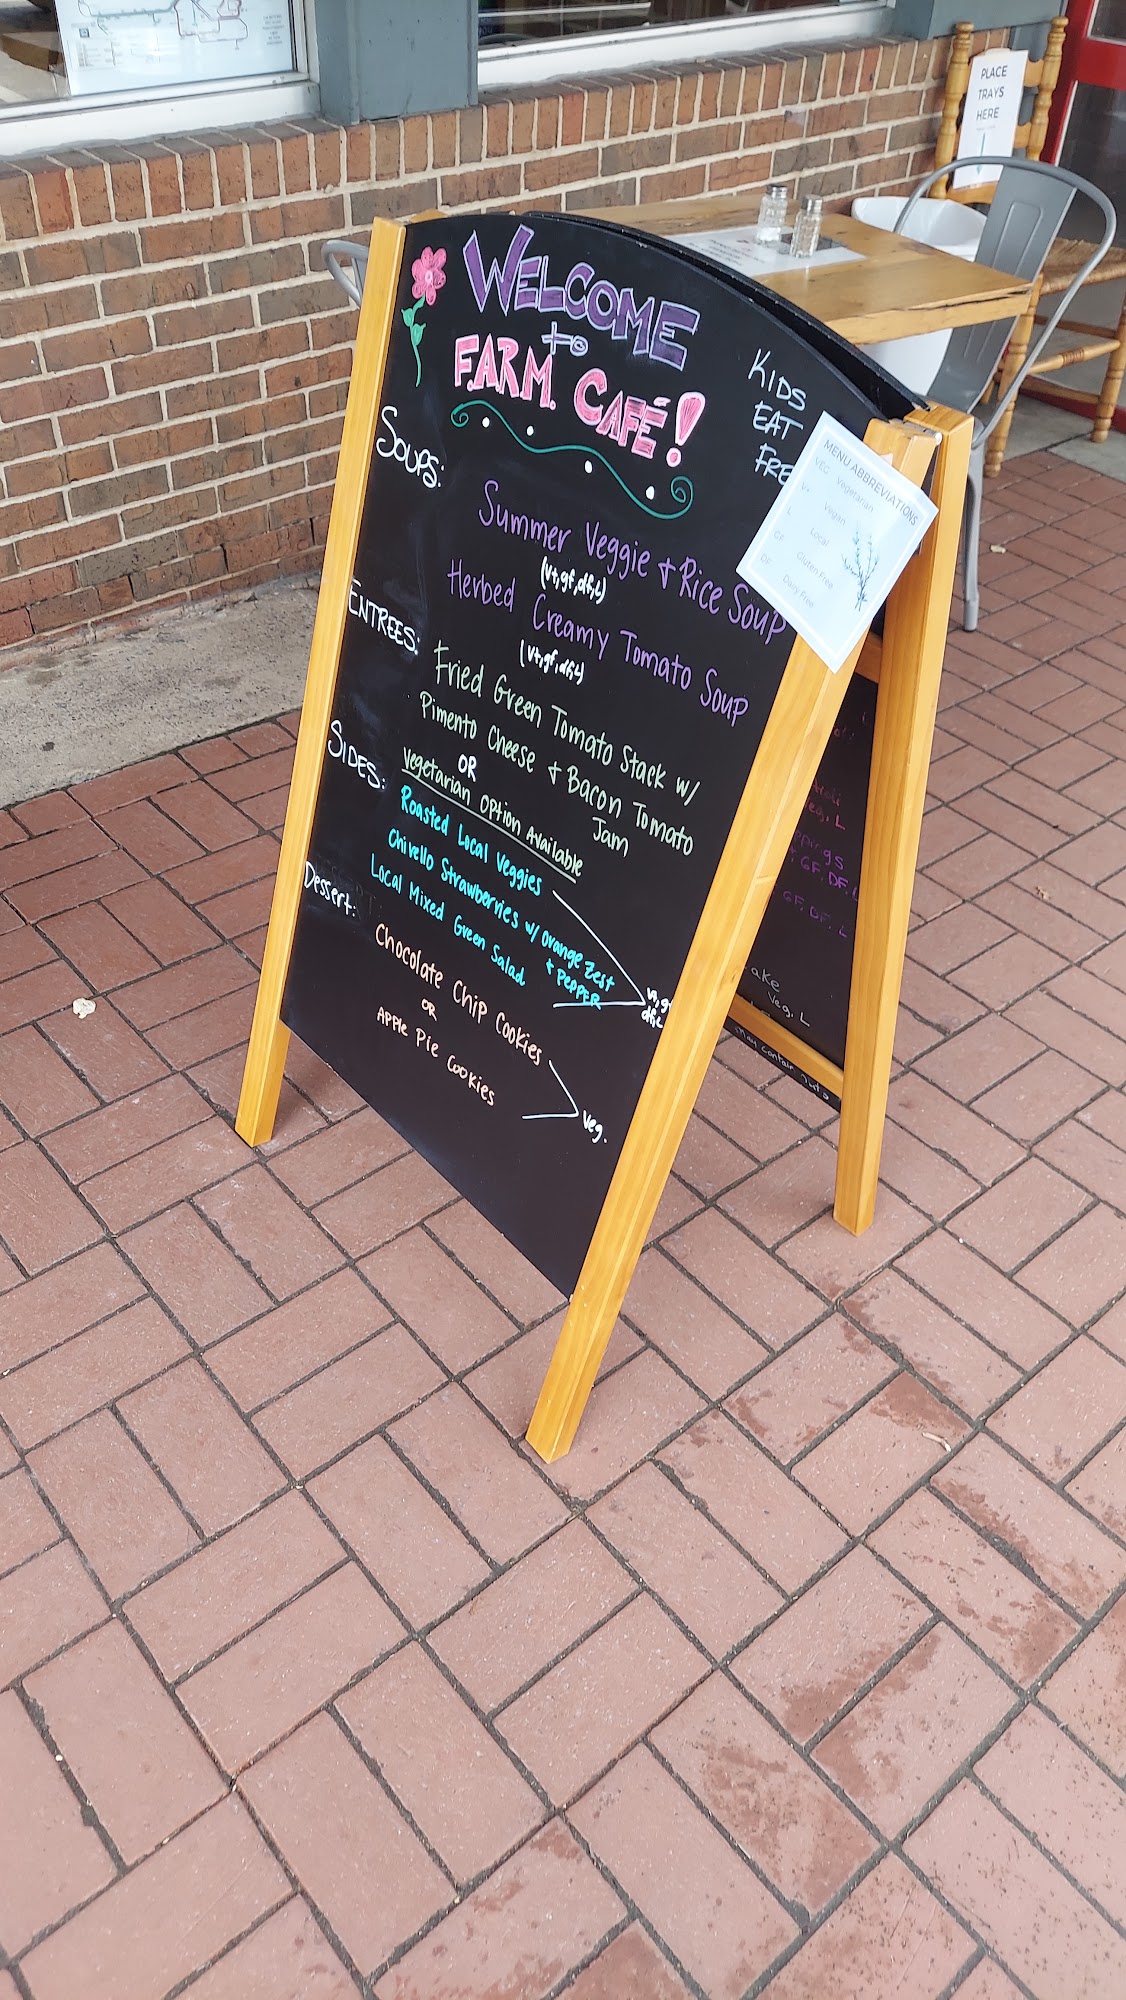 WELCOME
to
F.A.R.M. CAFÉ!
KIDS
EAT
FREE
SOUPS:
Summer Veggie + Rice Soup
(v+,gf,df,L)
Herbed Creamy Tomato Soup
(v+,gf,df,L)
ENTREES:
Fried Green Tomato Stack w/
Pimento Cheese + Bacon Tomato
Jam
OR
vegetarian option Available
SIDES:
Roasted Local Veggies
Chivello Strawberries w/ orange zest
+ PEPPER
Local Mixed Green Salad
v+,gf
df,L
Dessert:
Chocolate Chip Cookies
OR
APPle Pie Cookies
veg.
MENU ABBREVIATIONS
VEG Vegetarian
V+ Vegan
L Local
GF Gluten Free
DF Dairy Free
PLACE
TRAYS
HERE
eg. L
GF, DF, L
GF, DF, L
ake
veg. L
may contain nuts